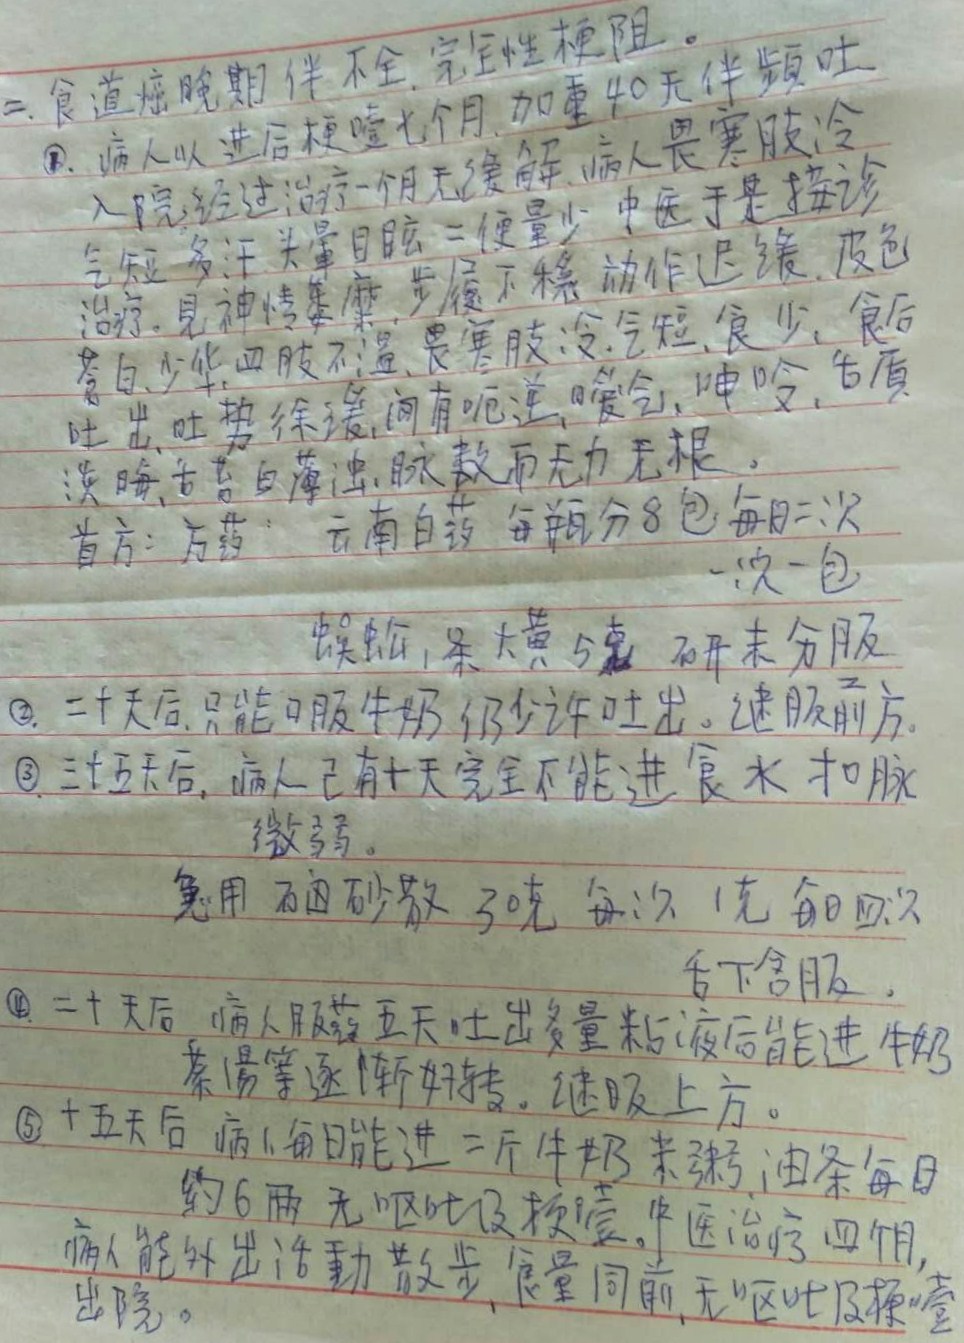 二. 食道癌晚期伴不全、完全性梗阻。
①. 病人以进后梗噎七个月. 加重40天伴频吐
入院经过治疗一个月无缓解. 病人畏寒肢冷
气短 多汗 头晕目眩 二便量少 中医于是接诊
治疗。見神情萎靡, 步履不稳 动作迟缓. 皮色
苍白、少华、四肢不温、畏寒肢冷、气短、食少、食后
吐出、吐势徐缓, 间有呃逆, 嗳气、呻吟、舌质
淡晦、舌苔白薄浊、脉数而无力无根。
首方: 方药: 云南白药 每瓶分8包 每日二次
一次一包
蜈蚣1条 大黄5克 研末分服
②. 二十天后. 只能口服牛奶仍少许吐出。继服前方.
③. 三十五天后, 病人已有十天完全不能进食水 扣脉
微弱。
急用 硇砂散 30克 每次 1克 每日四次
舌下含服.
④. 二十天后 病人服药五天吐出多量粘液后能进牛奶
菜湯等逐渐好转。继服上方。
⑤ 十五天后 病人每日能进二斤牛奶 米粥, 油条每日
约6两 无呕吐及梗噎。中医治疗四个月,
病人能外出活動散步, 食量同前, 无呕吐及梗噎
出院。